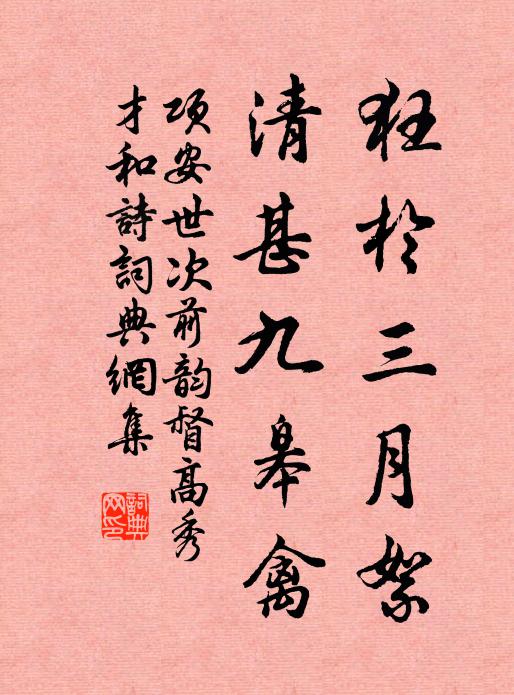 狂於三月絮
清甚九皋禽
項安世次前韵督高秀
才和詩詞典網集
詞典網印